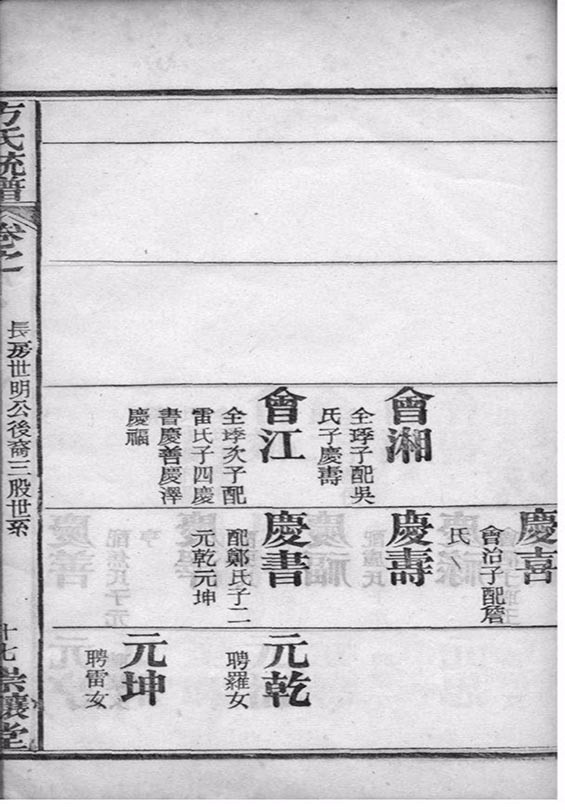 慶喜
會治子配詹
氏
會湘
仝琈子配吳
氏子慶壽
慶壽
會江
仝琈次子配
雷氏子四慶
書慶善慶澤
慶福
慶書
配鄭氏子二
元乾元坤
元乾
聘羅女
元坤
聘雷女
方氏統譜
卷之一
長房世明公後裔三股世系
十七
堂